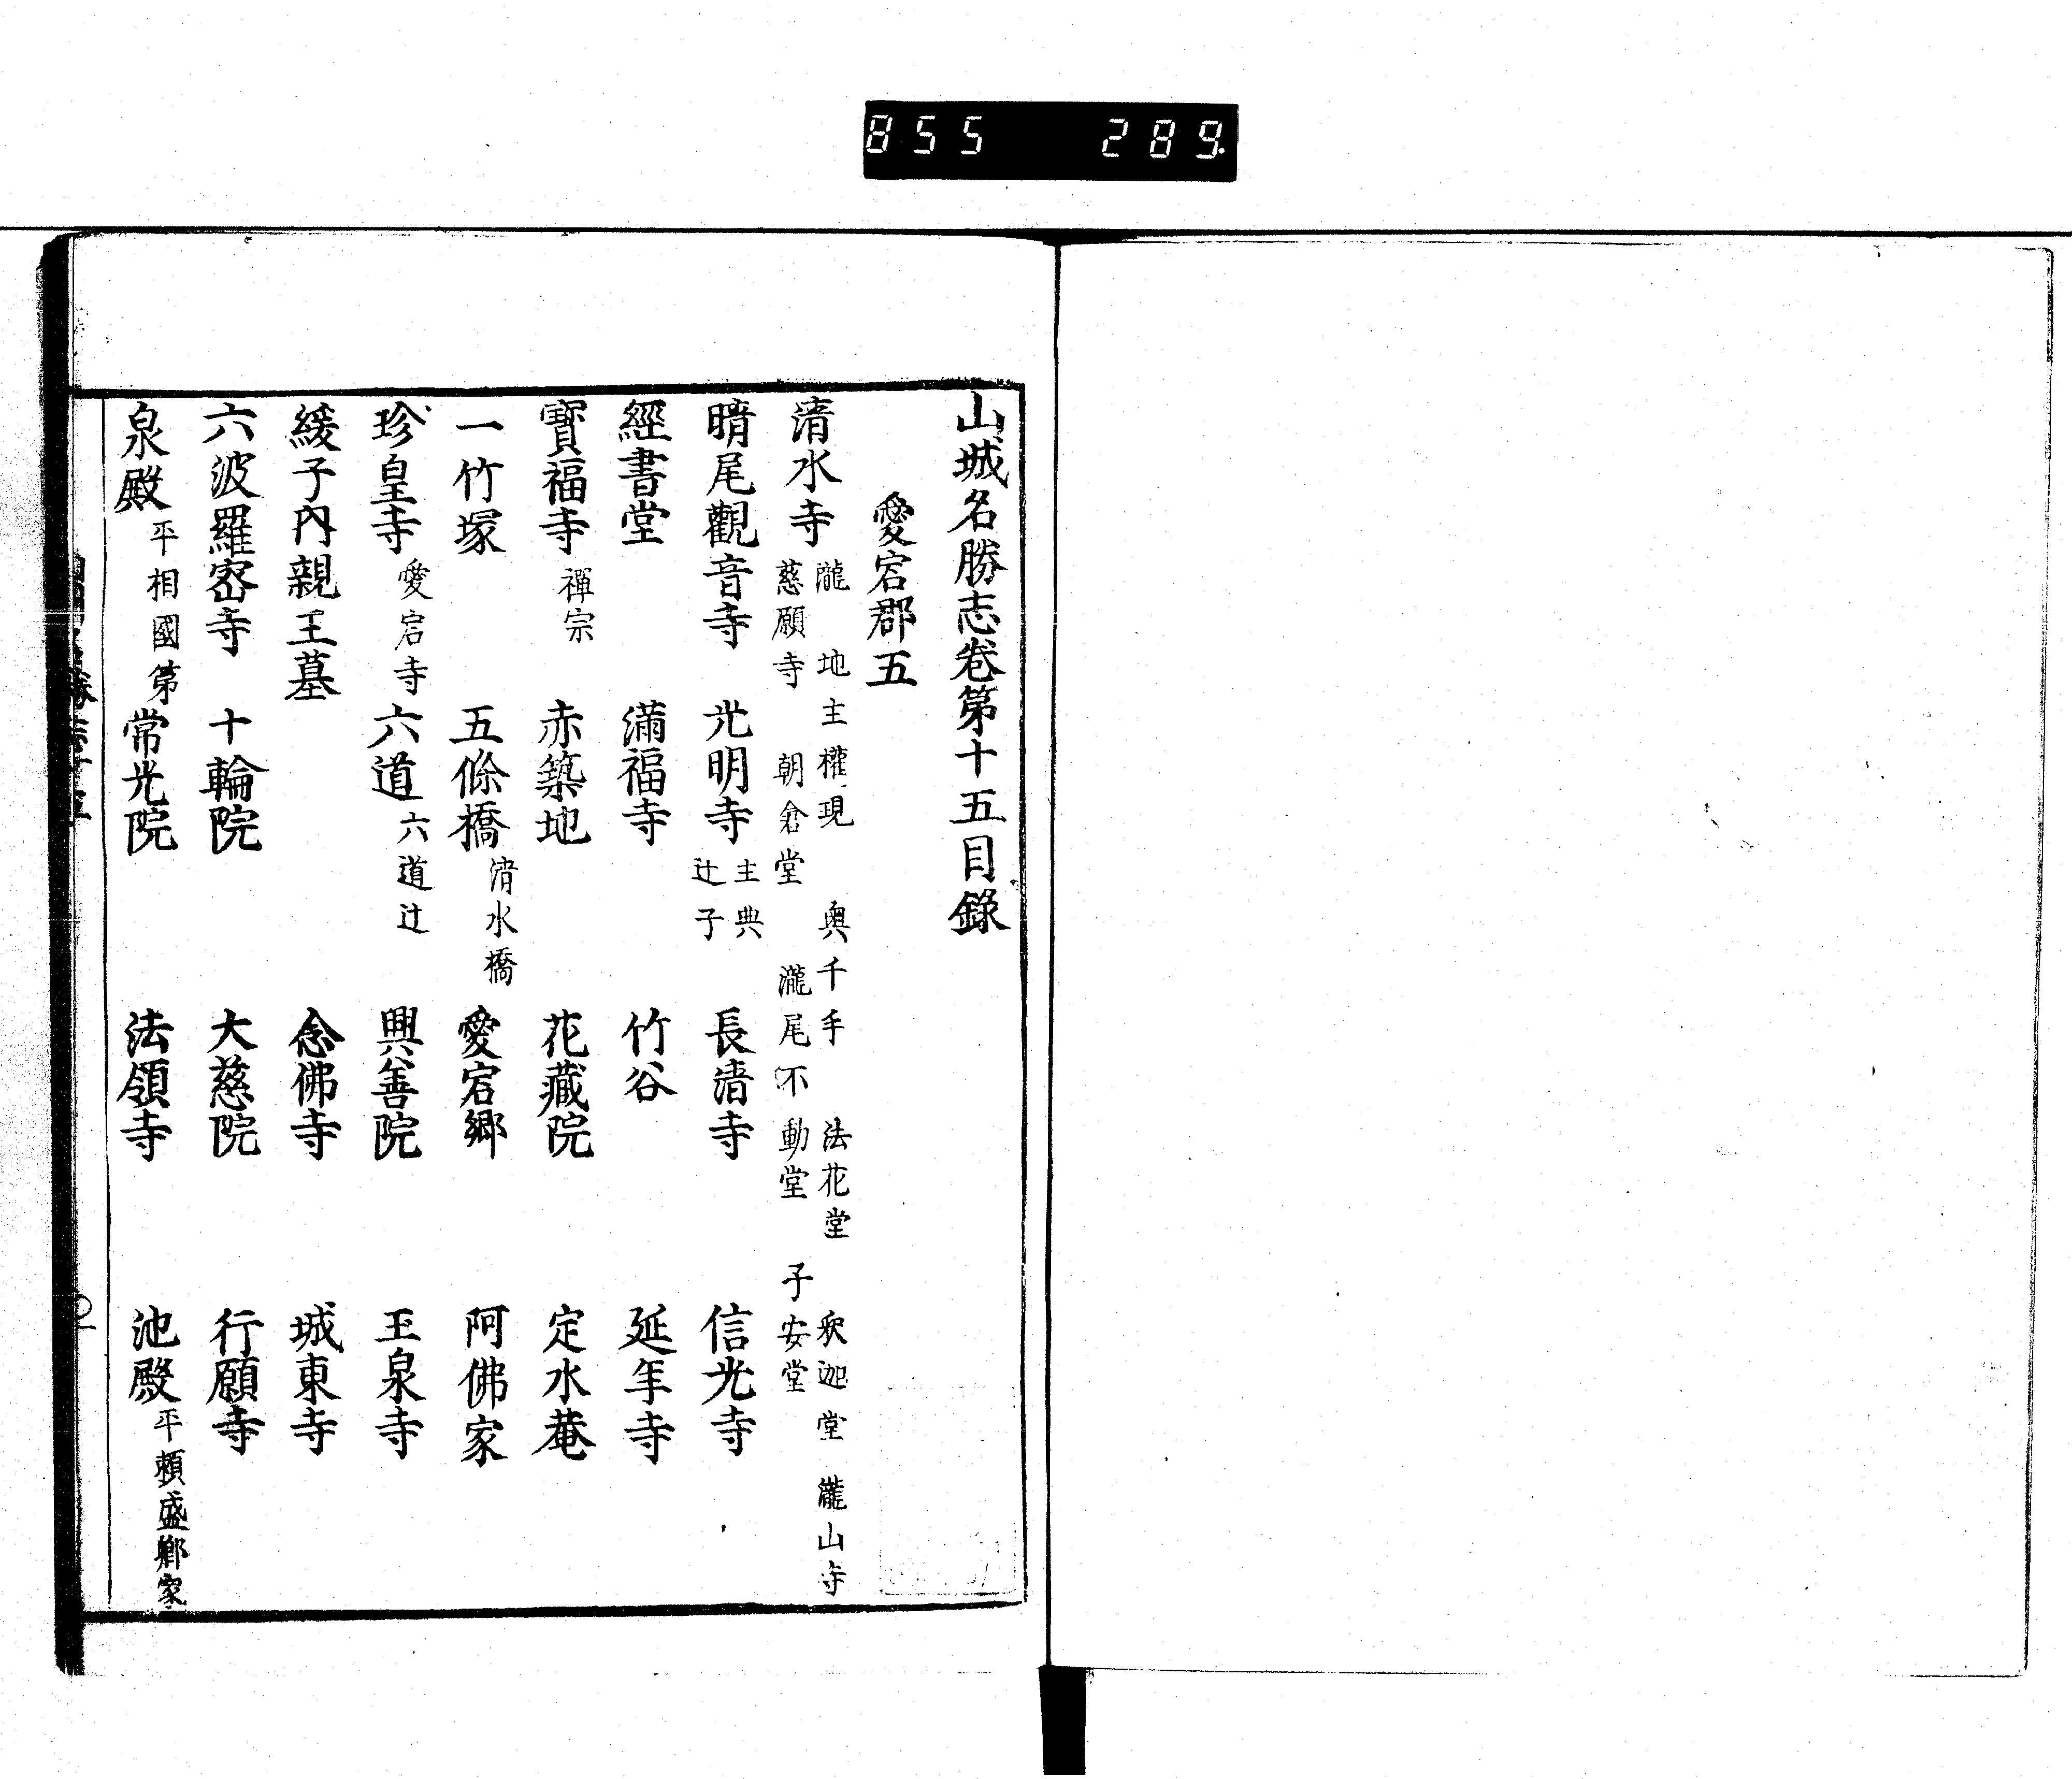 855 289.
山城名勝志卷第十五目錄
愛宕郡五
清水寺 瀧 地主權現 奥千手 法花堂 釈迦堂 瀧山寺
慈願寺 朝倉堂 瀧尾不動堂 子安堂
晴尾觀音寺 光明寺 主典辻子 長清寺 信光寺
經書堂 滿福寺 竹谷 延年寺
寳福寺 禪宗 赤築地 花藏院 定水菴
一竹塚 五條橋 清水橋 愛宕郷 阿佛家
珍皇寺 愛宕寺 六道 六道辻 興善院 玉泉寺
緩子内親王墓 念佛寺 城東寺
六波羅密寺 十輪院 大慈院 行願寺
泉殿 平相國第 常光院 法領寺 池殿 平頼盛郷家